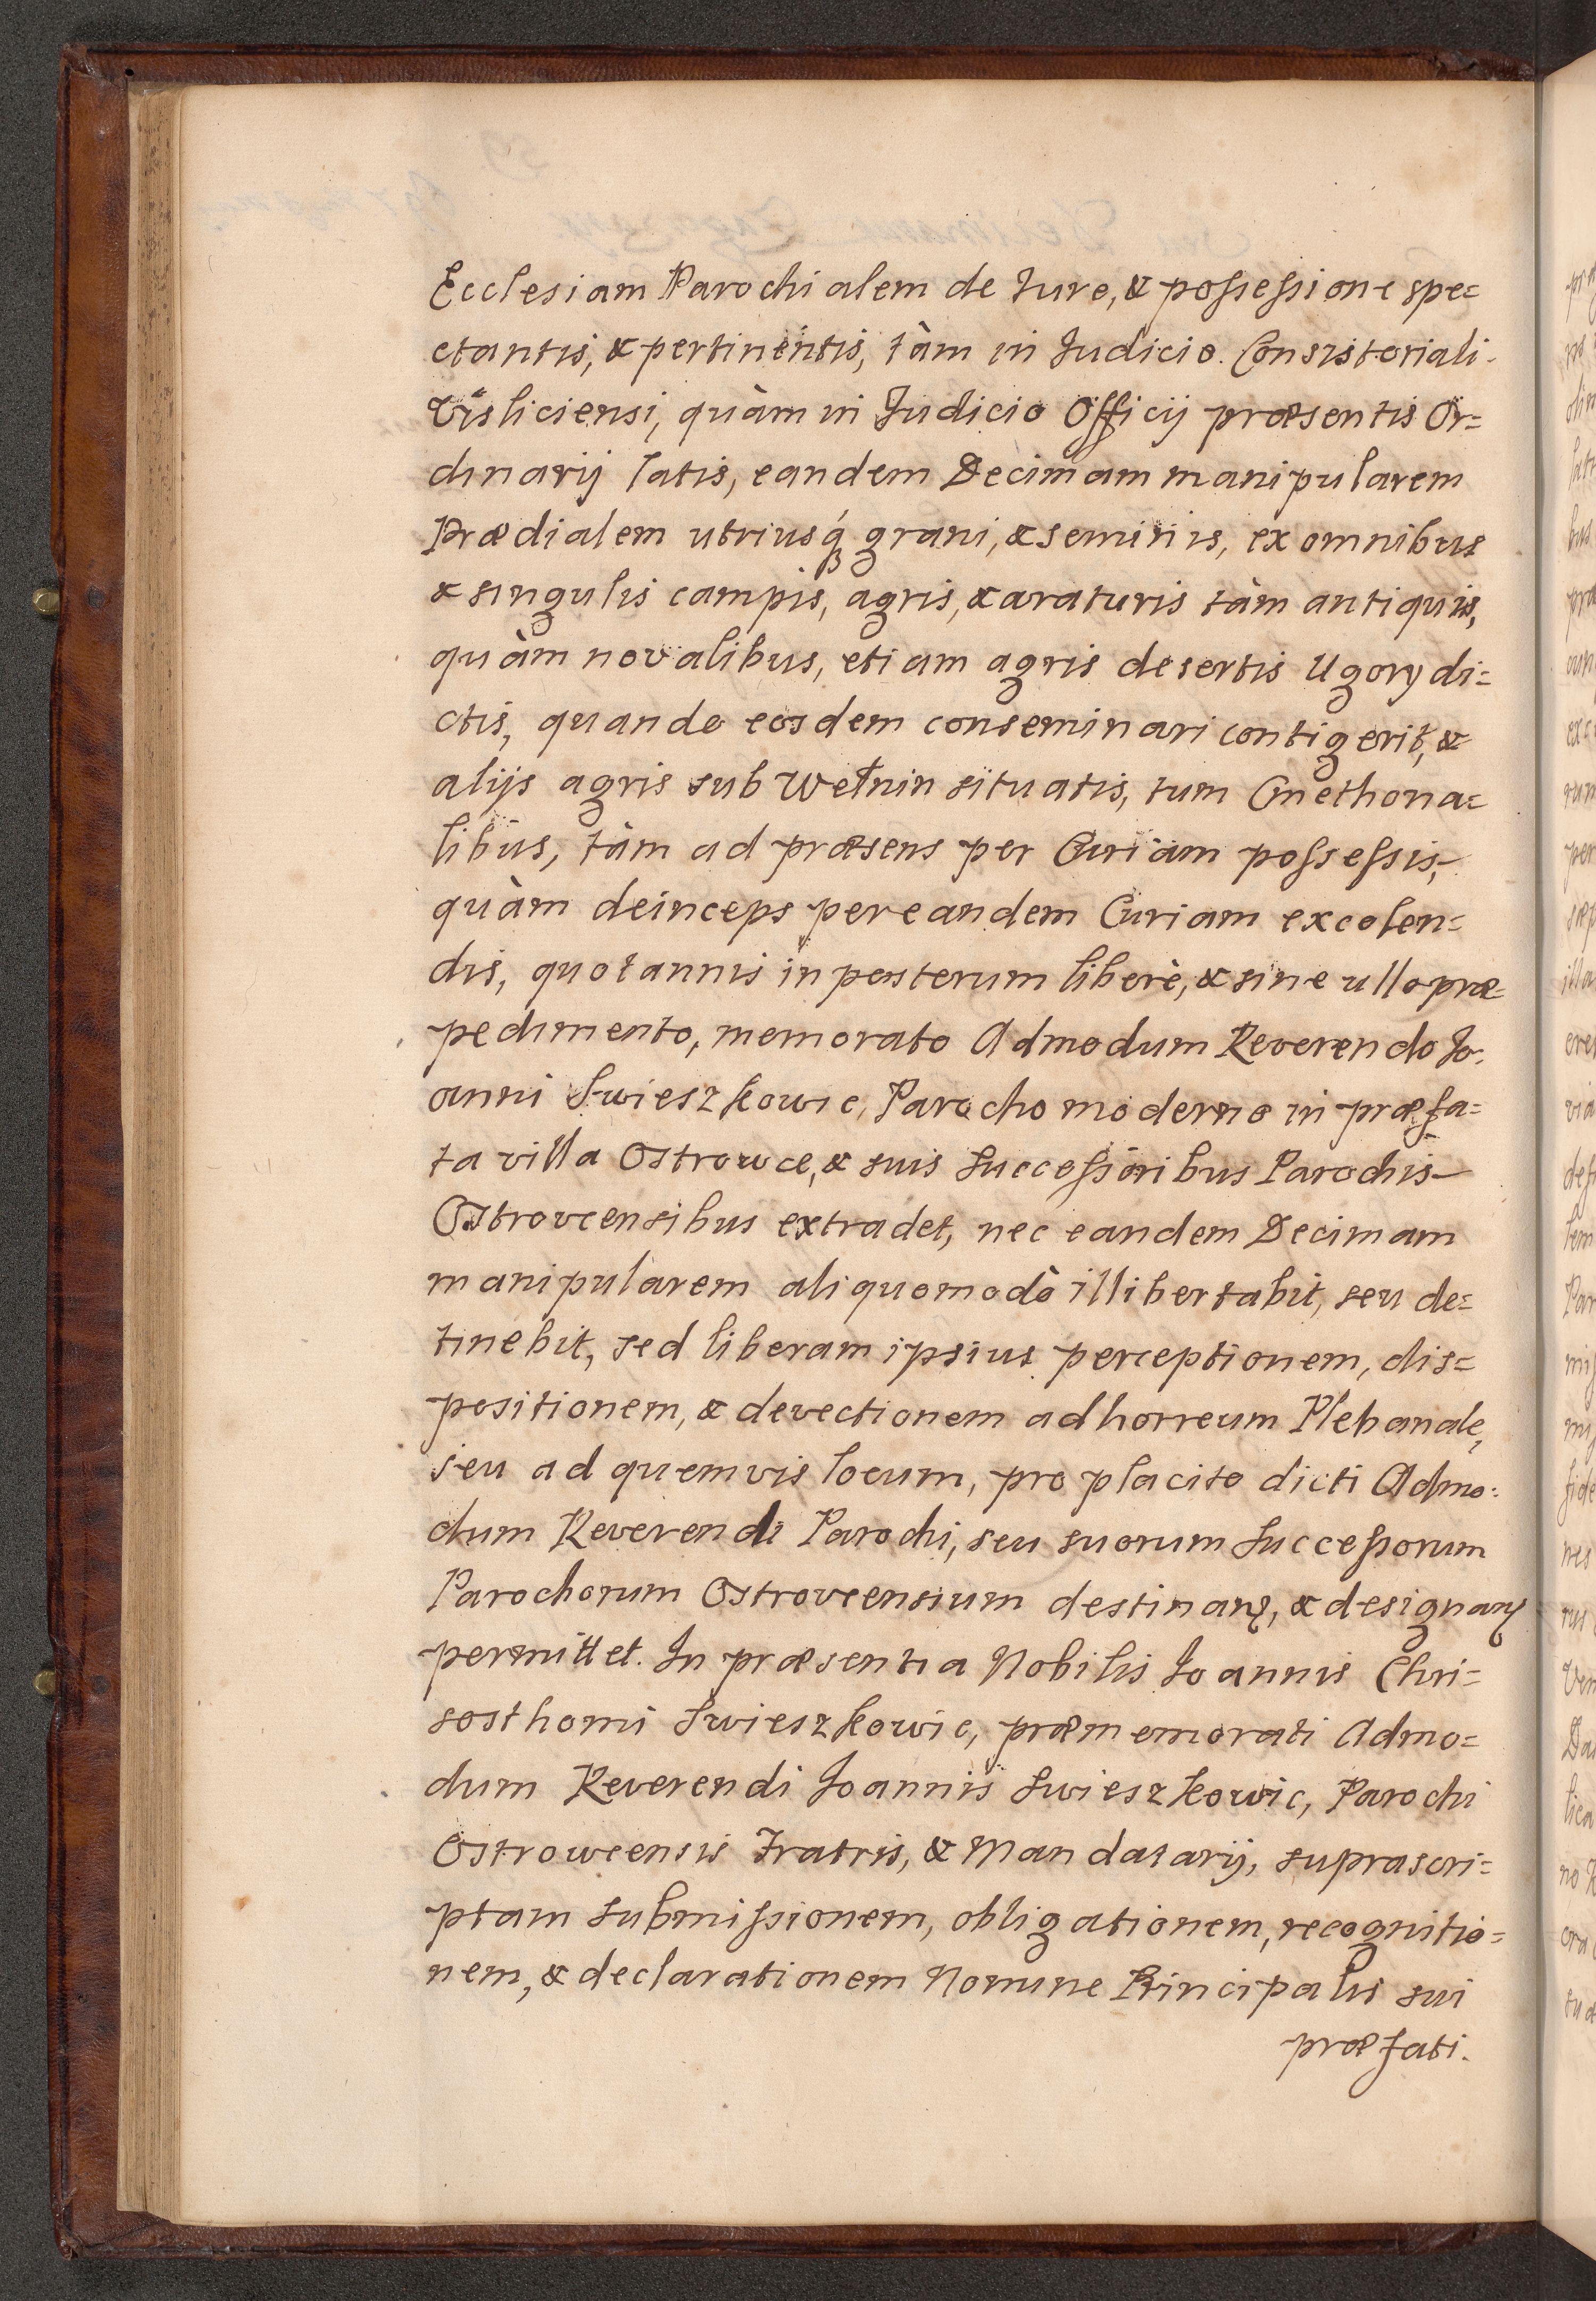 Ecclesiam Parochialem de Jure, & possessione spe=
ctantis, & pertinentis, tàm in Judicio Consistoriali
Visliciensi, quàm in Judicio Officij præsentis Or=
dinarij latis, eandem Decimam manipularem
Prædialem utriusq́ꝫ grani, & seminis, ex omnibus
& singulis campis, agris, & araturis tàm antiquis,
quàm novalibus, etiam agris desertis Ugory di=
ctis, quando eosdem conseminari contigerit, &
alijs agris sub Wełnin situatis, tum Cmethona=
libus, tàm ad præsens per Curiam possessis,
quàm deinceps per eandem Curiam excolen=
dis, quotannis in posterum liberè, & sine ullo præ=
pedimento, memorato Admodum Reverendo Jo:
anni Swieszkowic, Parocho moderno in præfa=
ta villa Ostrowce, & suis Successoribus Parochis
Ostrovcensibus extradet, nec eandem Decimam
manipularem aliquomodò illibertabit, seu de=
tinebit, sed liberam ipsius perceptionem, dis=
positionem, & devectionem ad horreum Plebanale,
seu ad quemvis locum, pro placito dicti Admo:
dum Reverendi Parochi, seu suorum Successorum
Parochorum Ostrovcensium destinanꝭ, & designanꝭ
permittet. In præsentia Nobilis Joannis Chri=
sosthomi Swieszkowic, præmemorati Admo=
dum Reverendi Joannis Swieszkowic, Parochi
Ostrowcensis Fratris, & Mandatarij, suprascri=
ptam submissionem, obligationem, recognitio=
nem, & declarationem Nomine Principalis sui
præfati.